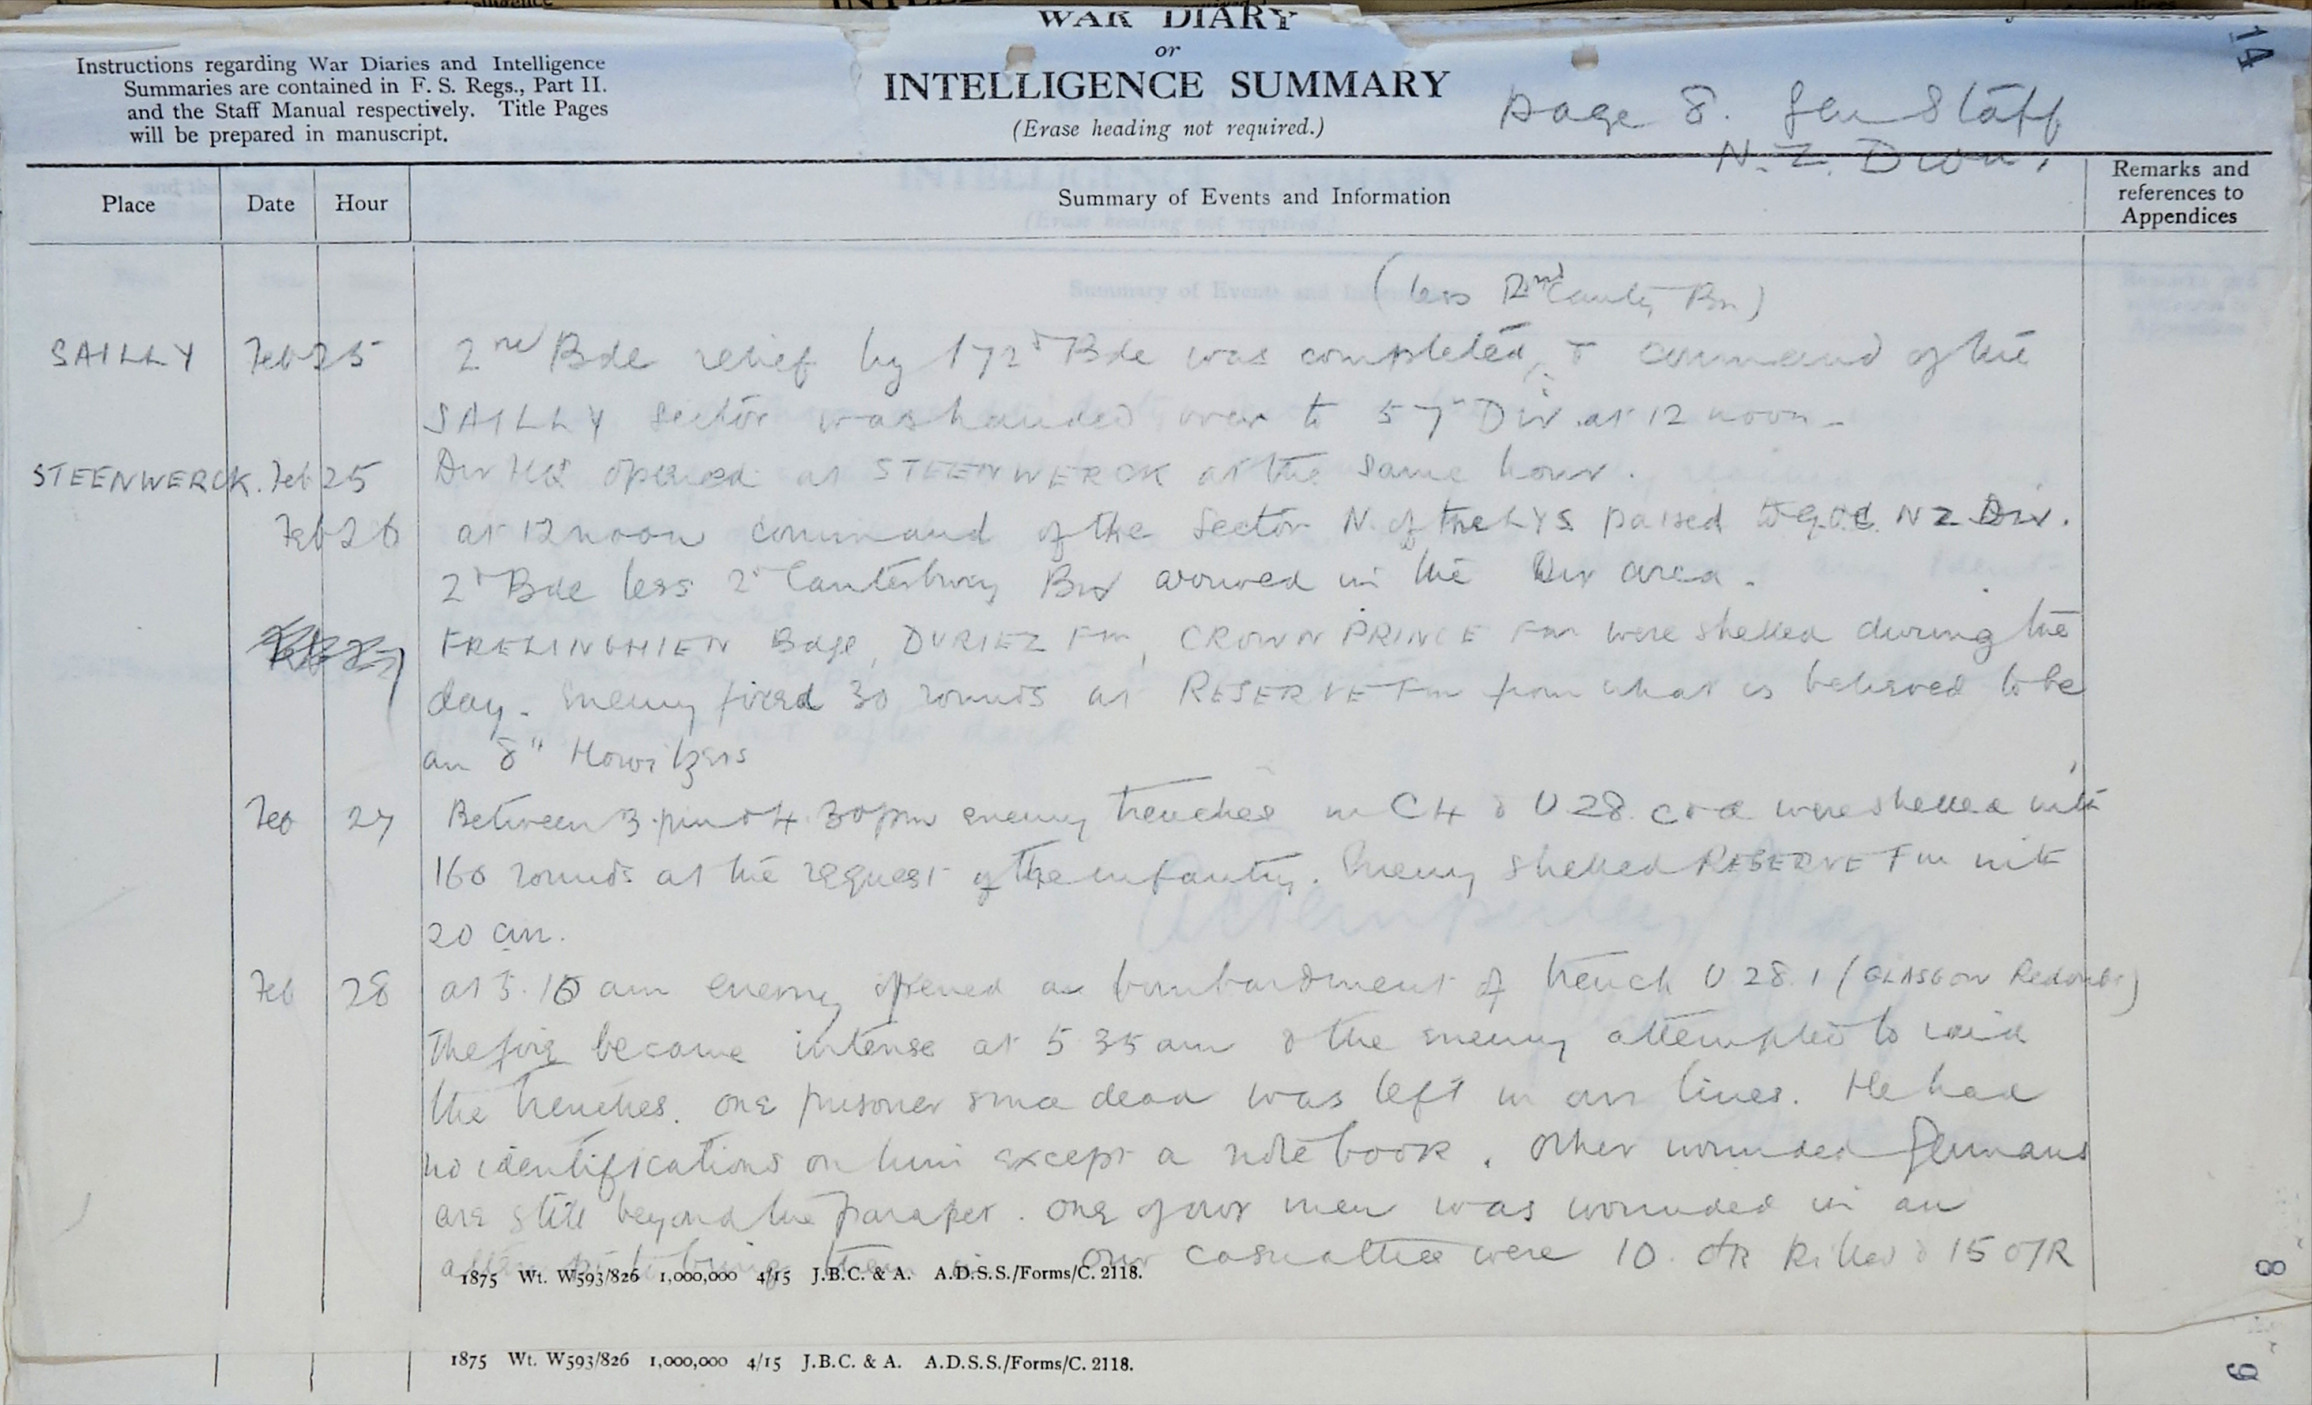 WAR DIARY
or
INTELLIGENCE SUMMARY
(Erase heading not required.)
Instructions regarding War Diaries and Intelligence
Summaries are contained in F. S. Regs., Part II.
and the Staff Manual respectively. Title Pages
will be prepared in manuscript.
Page 8. Gen Staff
N.Z. Divn.
14
Place Date Hour Summary of Events and Information Remarks and
references to
Appendices
(less 2nd Canty Bn)
SAILLY Feb 25 2nd Bde relief by 172d Bde was completed, & command of the
SAILLY Sector was handed over to 57 Div. at 12 noon -
STEENWERCK. Feb 25 Div HQ opened at STEENWERCK at the same hour.
Feb 26 at 12 noon command of the Sector N. of the LYS passed to G.O.C. NZ Div.
2d Bde less 2d Canterbury Bn arrived in the Div area.
FRELINGHIEN Bdge, DURIEZ Fm, CROWN PRINCE Fm were shelled during the
day. Enemy fired 30 rounds at RESERVE Fm from what is believed to be
an 8" Howitzers
Feb 27 Between 3.pm & 4.30pm enemy trenches in C4 & U28. c & d were shelled with
160 rounds at the request of the infantry. Enemy shelled RESERVE Fm with
20 cm.
Feb 28 at 5.15 am enemy opened a bombardment of trench U28.1 (GLASGOW Redoubt)
The fire became intense at 5 35 am & the enemy attempted to raid
the trenches. One prisoner since dead was left in our lines. He had
no identifications on him except a note book. Other wounded Germans
are still beyond the parapet. One of our men was wounded in an
attempt to bring them in. Our casualties were 10. OR killed & 15 O/R
1875 Wt. W593/826 1,000,000 4/15 J.B.C. & A. A.D.S.S./Forms/C. 2118.
8
1875 Wt. W593/826 1,000,000 4/15 J.B.C. & A. A.D.S.S./Forms/C. 2118.
9